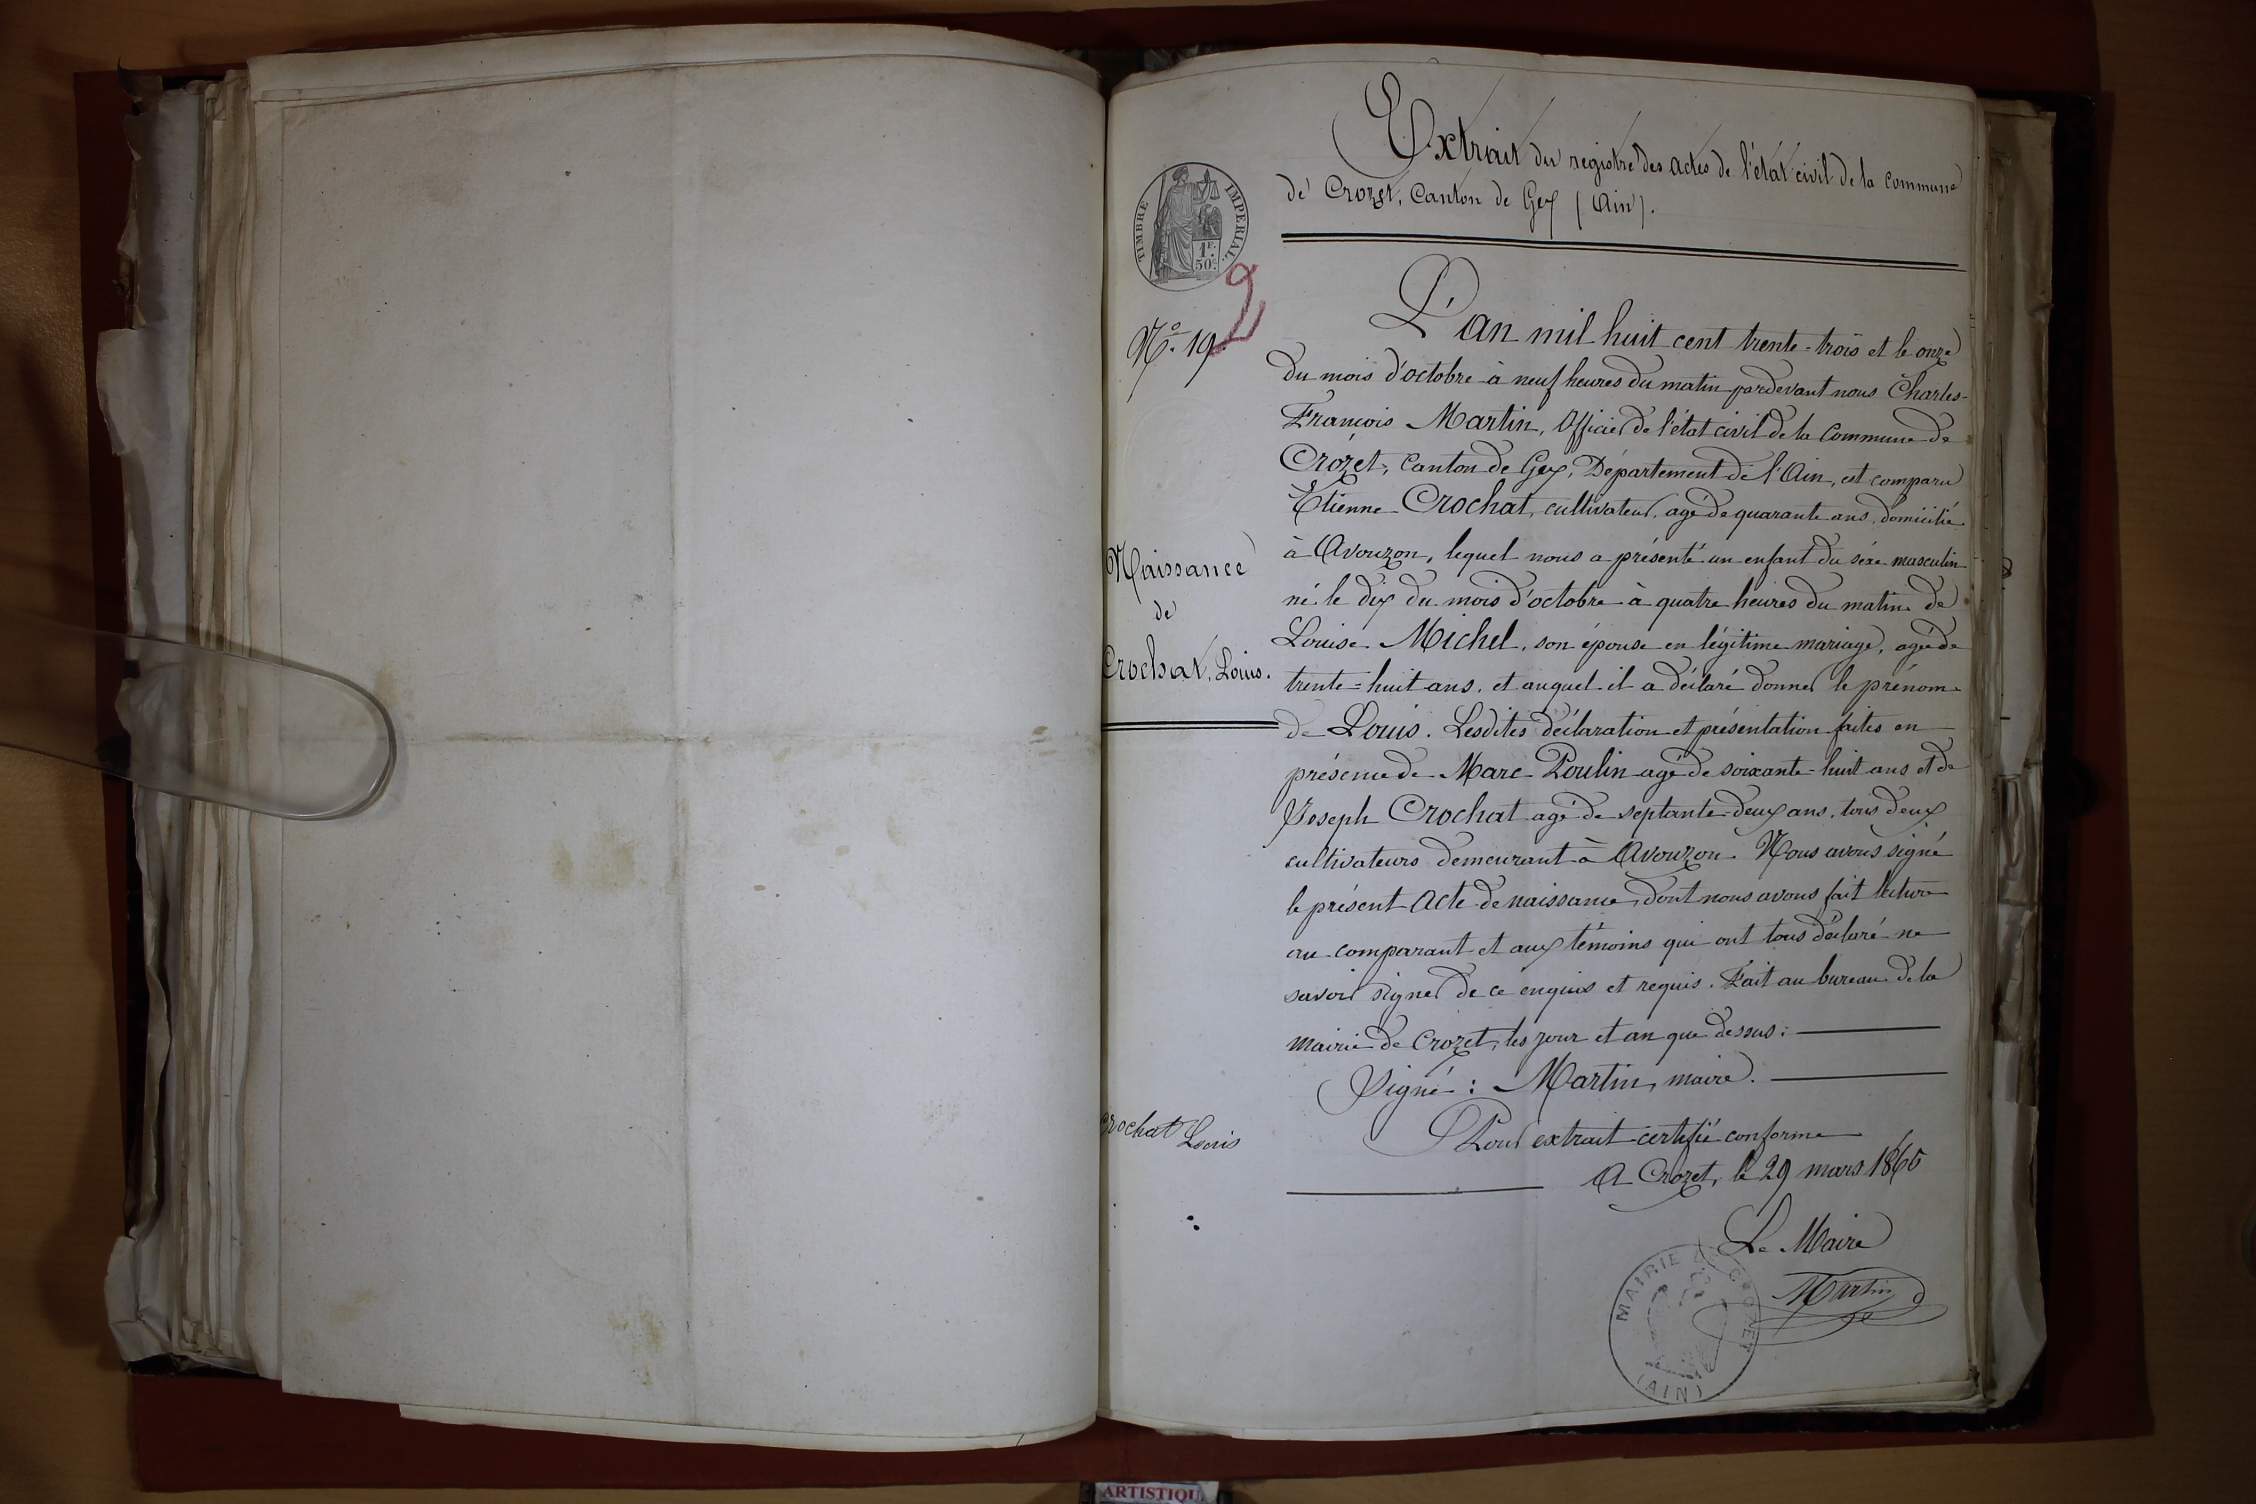 Extrait du registre des actes de l'état civil de la commune
de Crozet, Canton de Gex (Ain).
TIMBRE IMPERIAL
1F.
50c.
2
No. 19.
Naissance
de
Crochat, Louis.
L'an mil huit cent trente-trois et le onze
du mois d'octobre à neuf heures du matin pardevant nous Charles-
François Martin, Officier de l'état civil de la Commune de
Crozet, Canton de Gex, Département de l'Ain, est comparu
Etienne Crochat, cultivateur, agé de quarante ans, domicilié
à Avouzon, lequel nous a présenté un enfant du séxe masculin
né le dix du mois d'octobre à quatre heures du matin de
Louise Michel, son épouse en légitime mariage, agée de
trente-huit ans, et auquel il a déclaré donner le prénom
de Louis. Lesdites déclaration et présentation faites en
présence de Marc Poulin agé de soixante-huit ans et de
Joseph Crochat agé de septante-deux ans, tous deux
cultivateurs demeurant à Avouzon. Nous avons signé
le présent Acte de naissance, dont nous avons fait lecture
au comparant et aux témoins qui ont tous déclaré ne
savoir signer de ce enquis et requis. Fait au bureau de la
mairie de Crozet, les jour et an que dessus:
Signé: Martin, maire.
Pour extrait certifié conforme
A Crozet, le 29 mars 1865
Crochat Louis
Le Maire
Martin
MAIRIE DE CROZET
(AIN)
ARTISTIQU